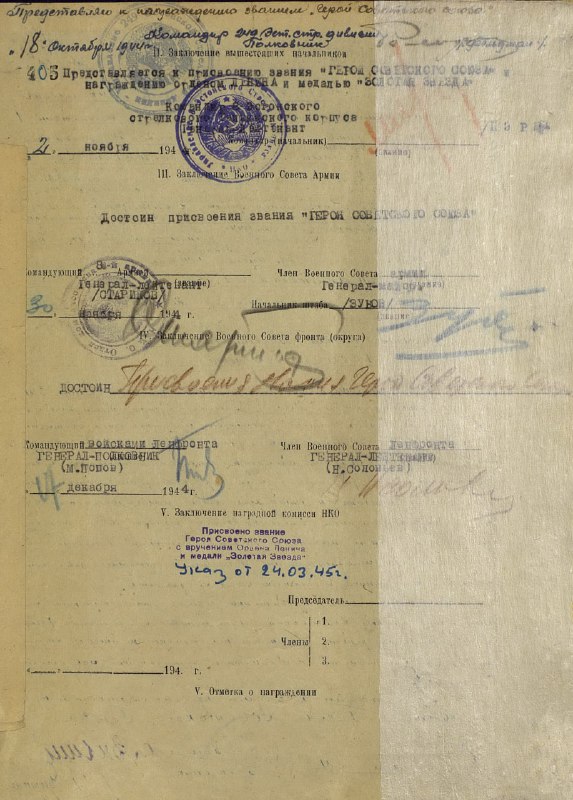 Представляю к награждению званием „Герой Советского Союза"
Командир 249 Эст. стр. дивизии
„18" октября 1944 г. Полковник
II. Заключение вышестоящих начальников
405 Представляется к присвоению звания "ГЕРОЯ СОВЕТСКОГО СОЮЗА" и
награждению орденом ЛЕНИНА и медалью "ЗОЛОТАЯ ЗВЕЗДА"
стрелкового корпуса
(начальник)
2 ноября 194
III. Заключение Военного Совета Армии
Достоин присвоения звания "ГЕРОЯ СОВЕТСКОГО СОЮЗА"
Командующий 8-й Армией
Член Военного Совета армии
Генерал-лейтенант (звание)
Генерал-майор
/СТАРИКОВ/
Начальник штаба /ЗУЕВ/
30 ноября 1944 г.
IV. Заключение Военного Совета фронта (округа)
ДОСТОИН Присвоения звания Герой Советского Союза
Командующий войсками Ленфронта
Член Военного Совета Ленфронта
ГЕНЕРАЛ-ПОЛКОВНИК
ГЕНЕРАЛ-ЛЕЙТЕНАНТ
(М.Попов)
(Н.Соловьев)
17 декабря 1944 г.
V. Заключение наградной комиссии НКО
Присвоено звание
Героя Советского Союза
с вручением Ордена Ленина
и медали „Золотая Звезда"
Указ от 24.03.45г.
Председатель
1.
Члены 2.
3.
„ " 194 г.
V. Отметка о награждении